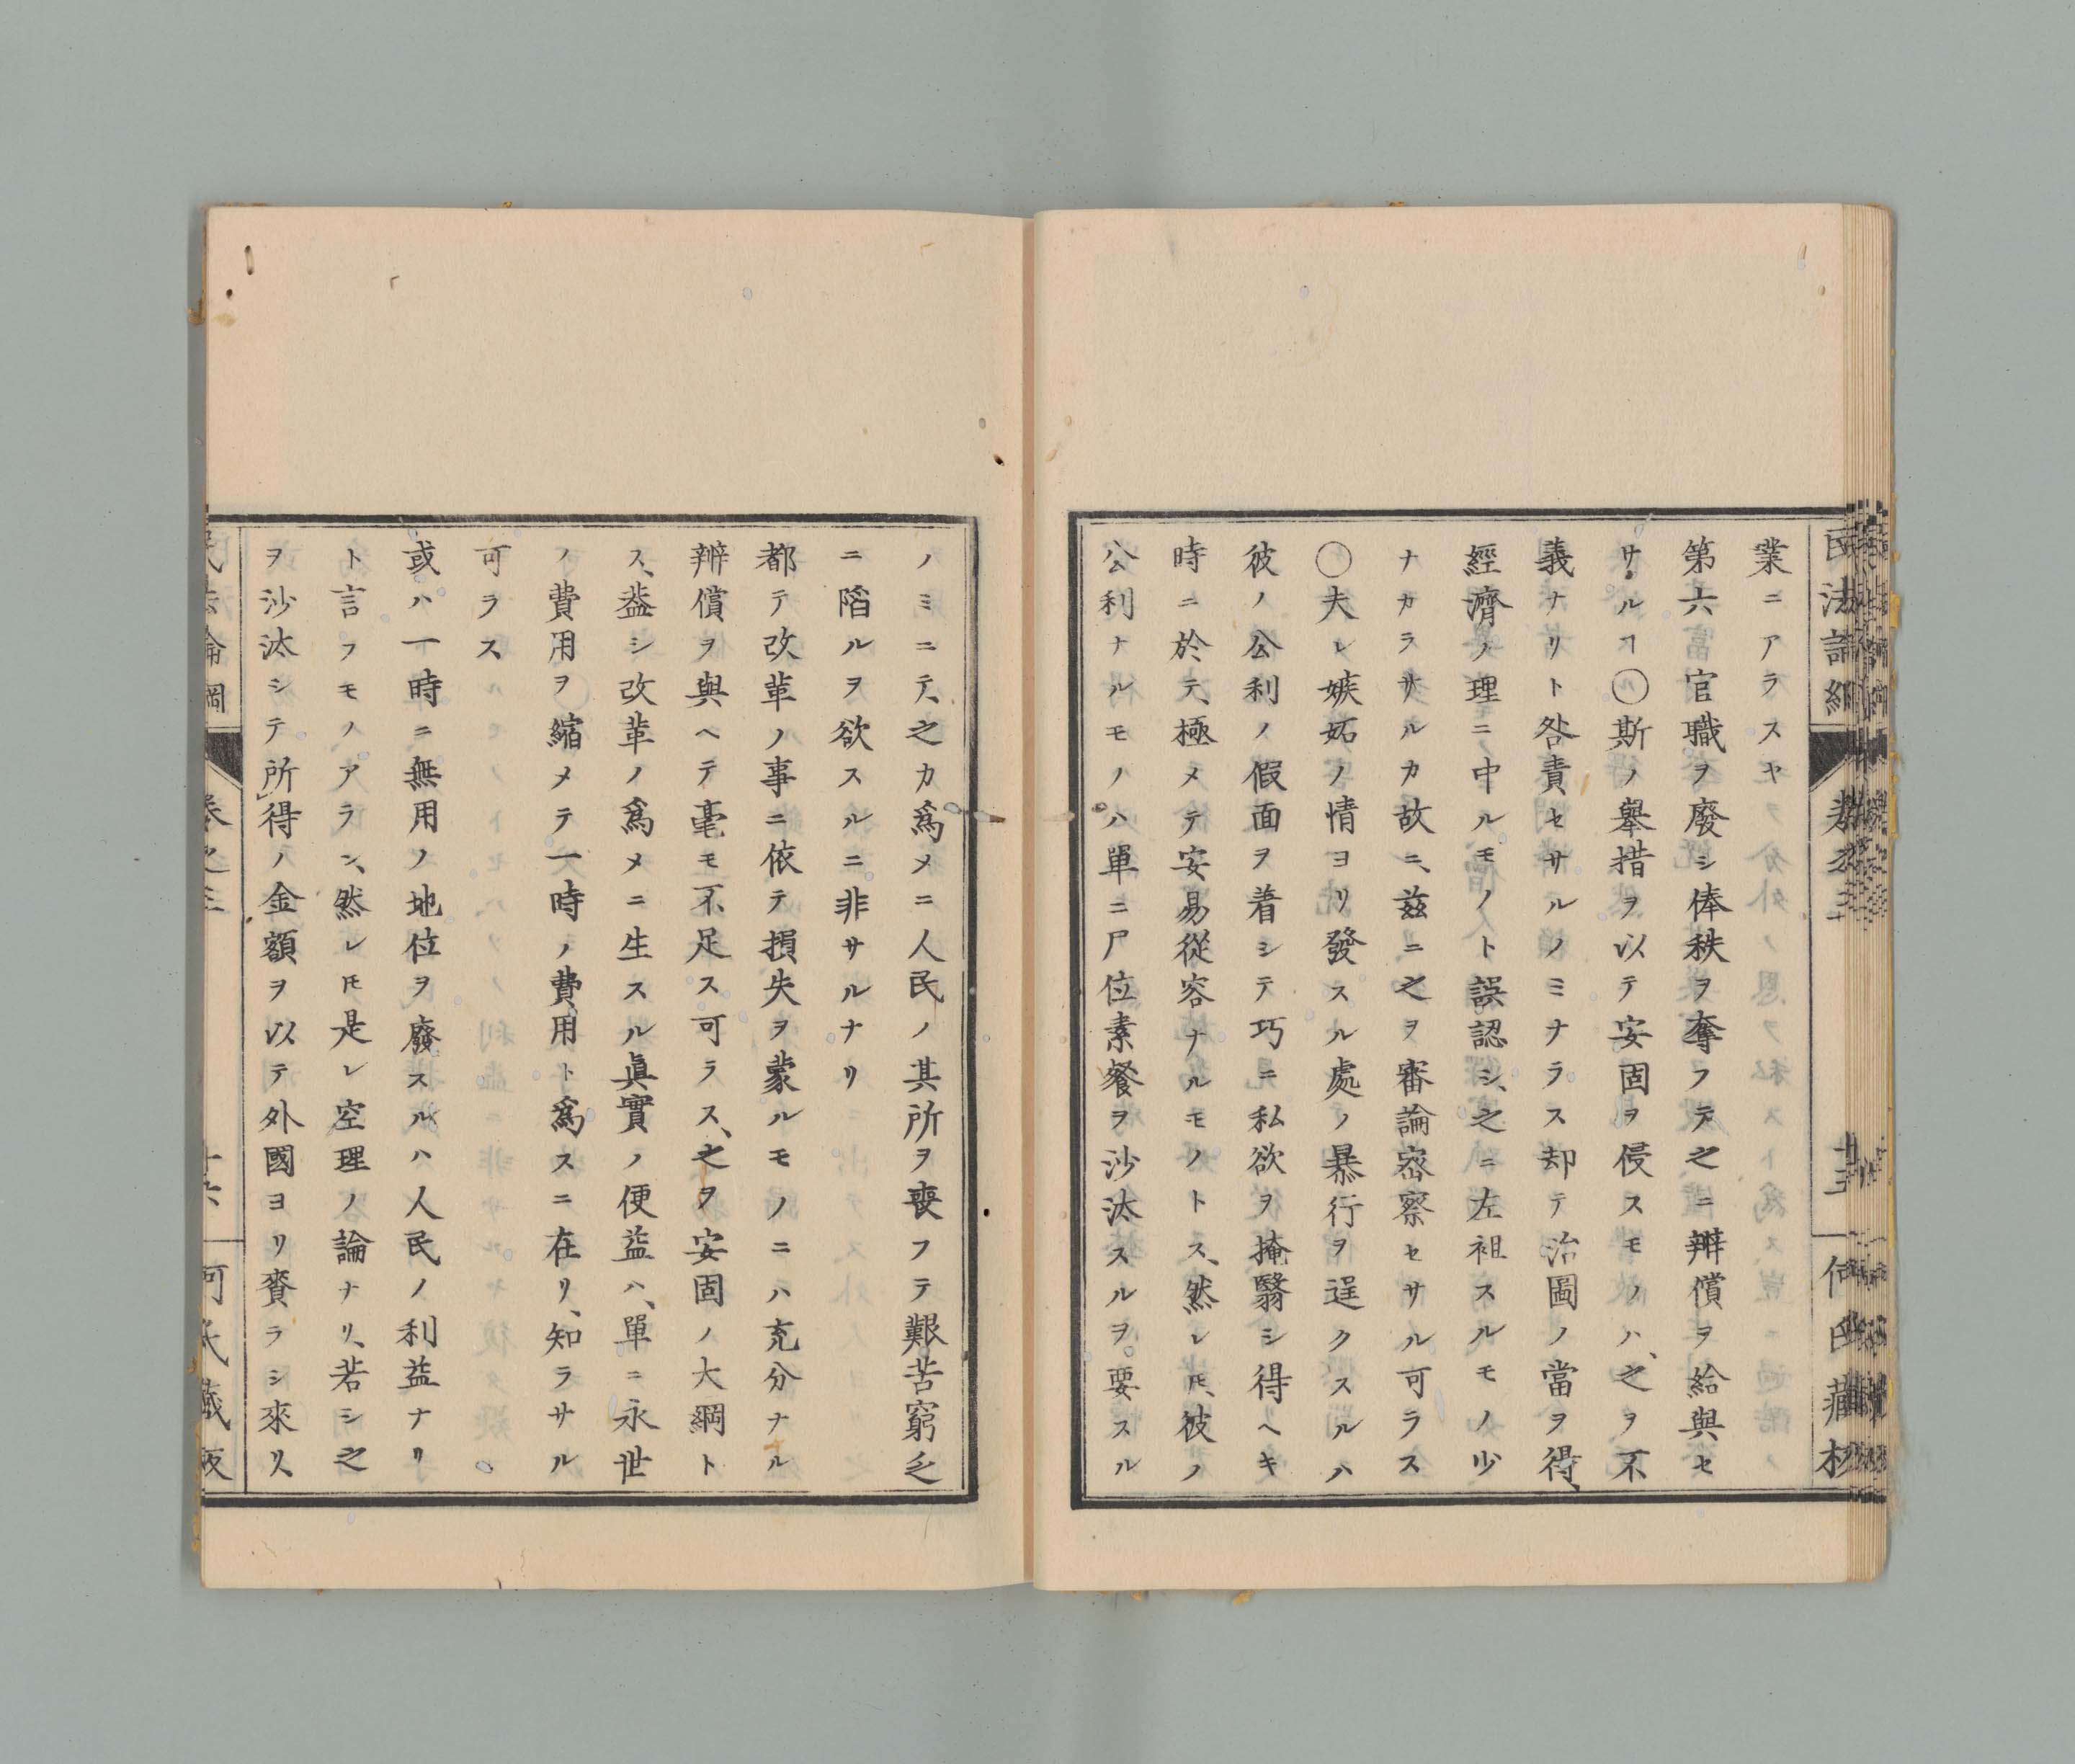 民法論綱
業ニアラスヤ
第六官職ヲ廢シ俸秩ヲ奪フテ之ニ辨償ヲ給與セ
サルヿ〇斯ノ擧措ヲ以テ安固ヲ侵スモノハ、之ヲ不
義ナリト咎責セサルノミナラス却テ治圖ノ當ヲ得、
經濟ノ理ニ中ルモノト誤認シ、之ニ左袒スルモノ少
ナカラサルカ故ニ、茲ニ之ヲ審論密察セサル可ラス
〇夫レ嫉妬ノ情ヨリ發スル處ノ暴行ヲ逞クスルハ
彼ノ公利ノ假面ヲ着シテ巧ニ私欲ヲ掩翳シ得ヘキ
時ニ於テ、極メテ安易從容ナルモノトス、然レ𪜈、彼ノ
公利ナルモノハ單ニ尸位素餐ヲ沙汰スルヲ要スル
ノミニテ、之カ爲メニ人民ノ其所ヲ喪フテ艱苦窮乏
ニ陷ルヲ欲スルニ非サルナリ
都テ改革ノ事ニ依テ損失ヲ蒙ルモノニハ充分ナル
辨償ヲ與ヘテ毫モ不足ス可ラス、之ヲ安固ノ大綱ト
ス、蓋シ改革ノ爲メニ生スル眞實ノ便益ハ、單ニ永世
ノ費用ヲ縮メテ一時ノ費用ト爲スニ在リ、知ラサル
可ラス
或ハ一時ニ無用ノ地位ヲ廢スルハ人民ノ利益ナリ
ト言フモノアラン、然レ𪜈是レ空理ノ論ナリ、若シ之
ヲ沙汰シテ所得ノ金額ヲ以テ外國ヨリ賚ラシ來リ、
民法論綱 卷之三 十六 何氏藏版